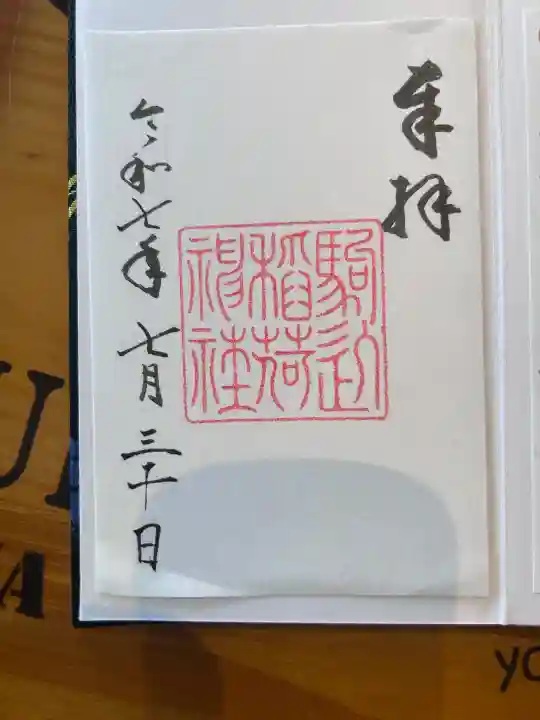 奉拝
駒込
稲荷
神社
令和七年 七月 三十日
U
A
YO